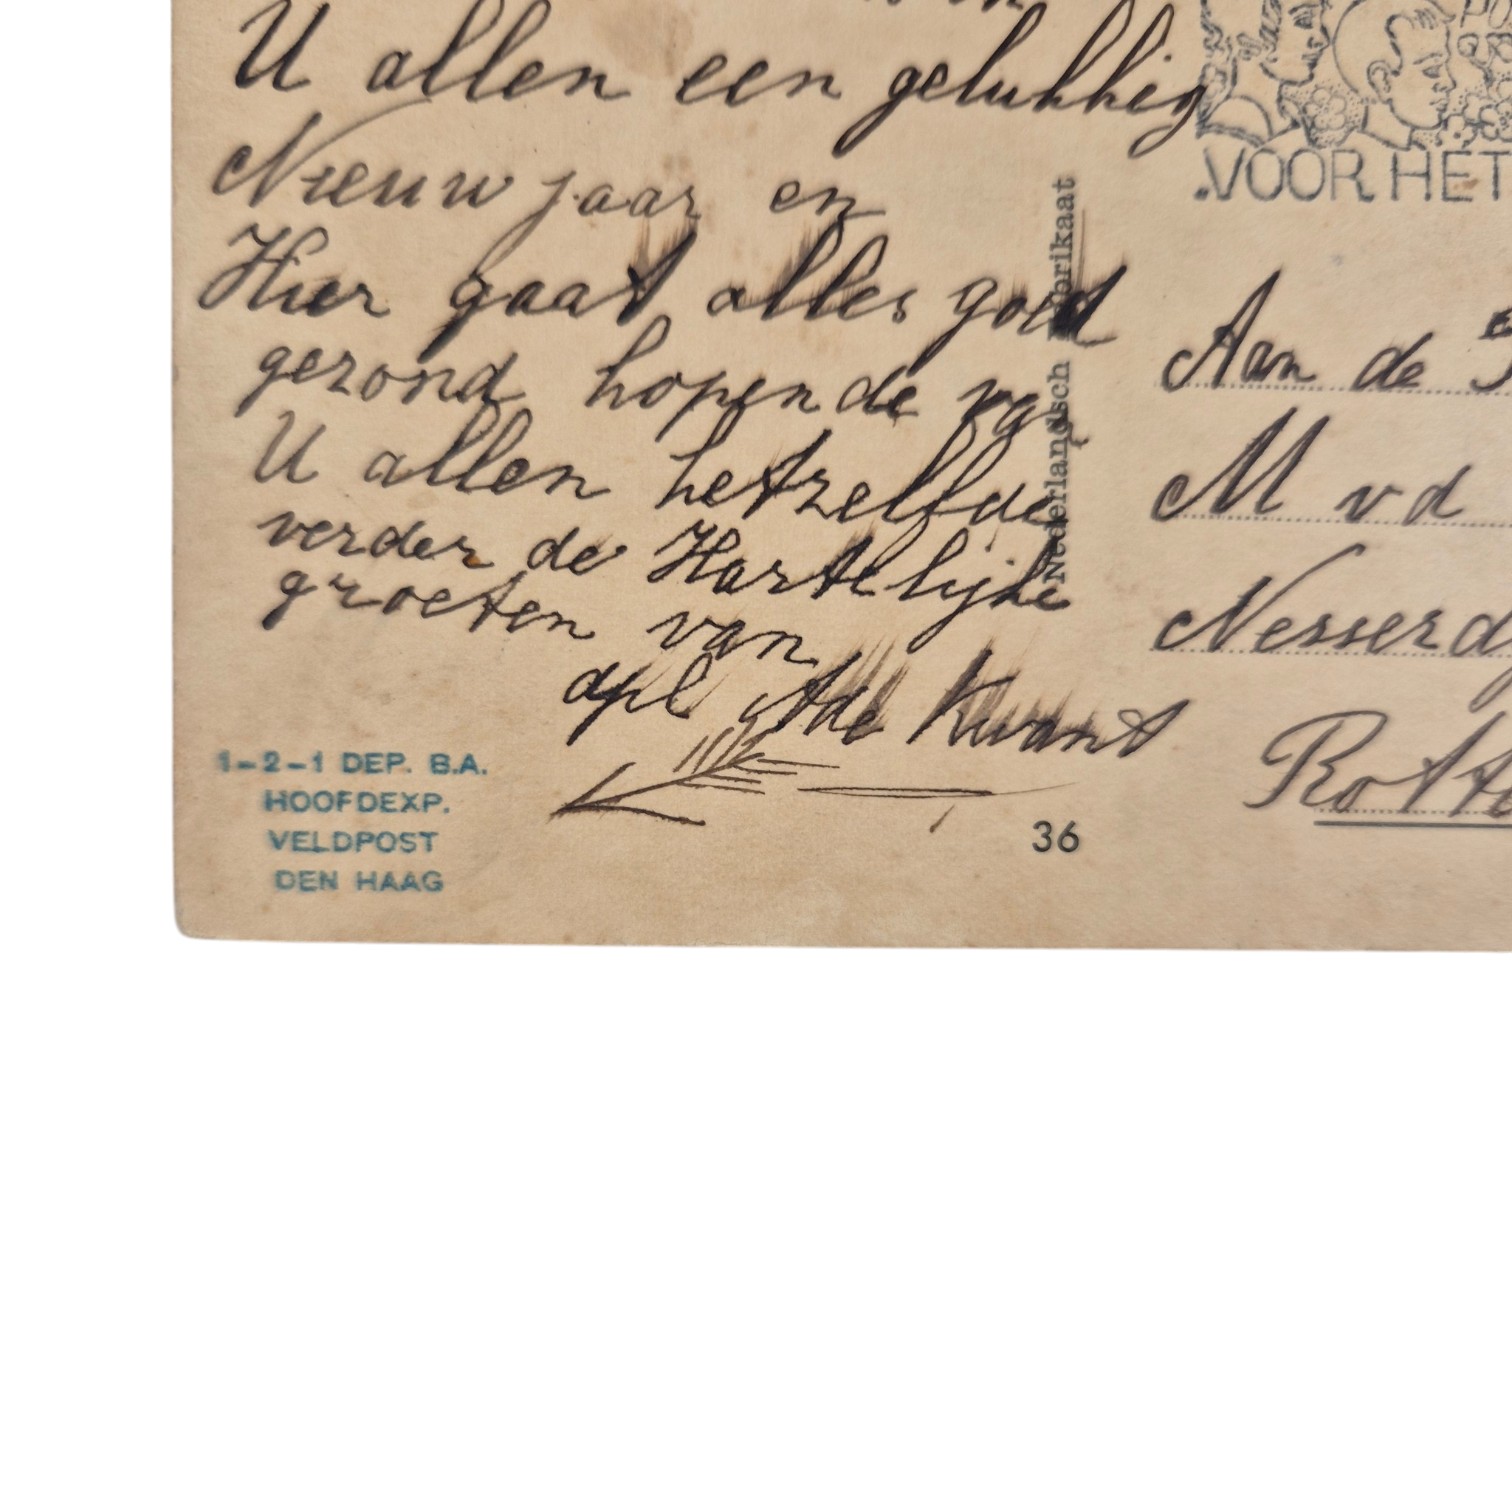 U allen een gelukkig
Nieuw jaar en
Hier gaat alles goed
gezond hopende va
U allen hetzelfde
verder de Hartelijke
groeten van
dpl Ade Kwant
1-2-1 DEP. B.A.
HOOFDEXP.
VELDPOST
DEN HAAG
36
Nederlandsch Fabrikaat
VOOR HET
Aan de
M vd
Nesserd
Rott